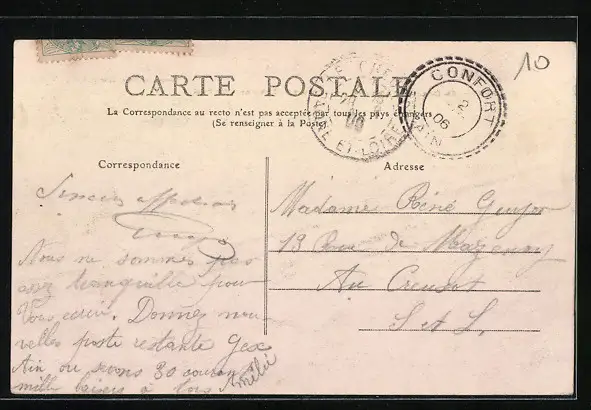 10
CARTE POSTALE
La Correspondance au recto n'est pas acceptée par tous les pays étrangers
(Se renseigner à la Poste)
SAONE-ET-LOIRE
CONFORT
AIN
06
Correspondance
Adresse
Nous ne sommes pas
assez tranquille pour
vous écrire. Donnez nou-
velles poste restante Gex
Ain où serons 30 courant
mille baisers à tous
Madame Réné
13 Rue de Mazenay
Au Creusot
S et L.